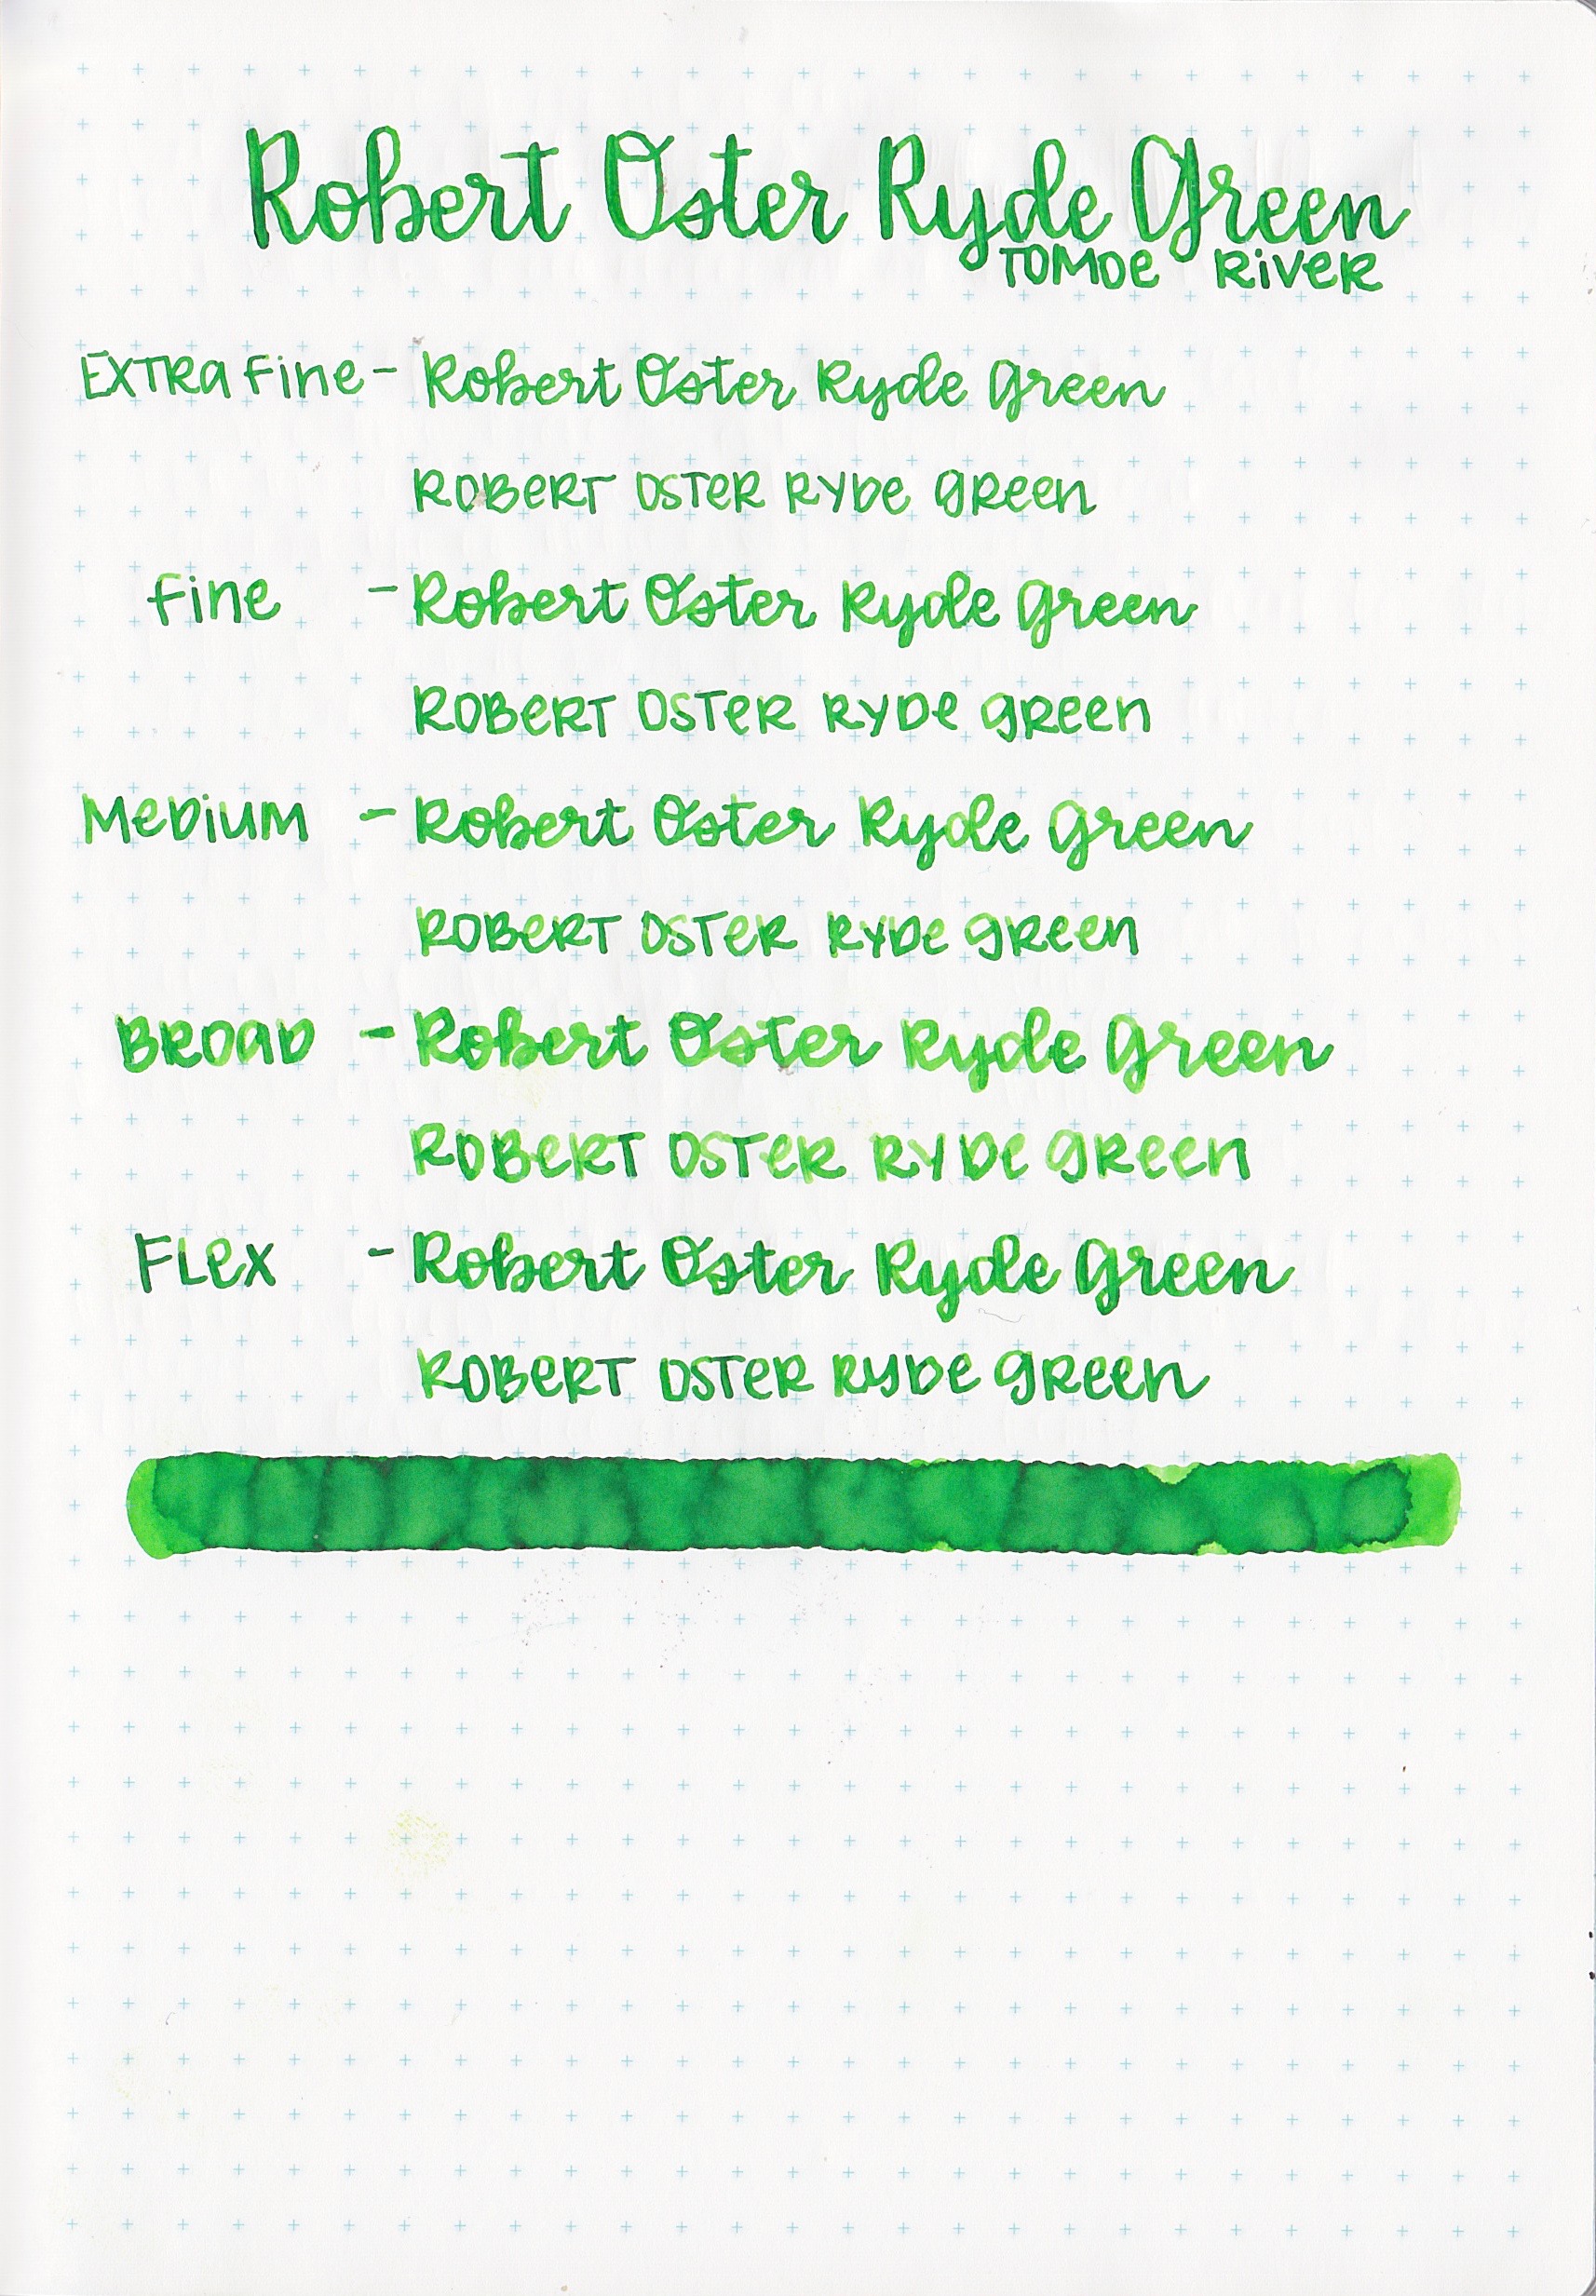 Robert Oster Ryde Green
TOMOE RiVER
EXTRa Fine - Robert Oster Ryde Green
ROBeRT OSTeR RYDe GReen
Fine - Robert Oster Ryde Green
ROBeRT OSTeR RYDe GReen
MeDiUM - Robert Oster Ryde Green
ROBeRT OSTeR RYDe GReen
BROaD - Robert Oster Ryde Green
ROBeRT OSTeR RYDe GReen
FLex - Robert Oster Ryde Green
ROBeRT OSTeR RyDe GReen